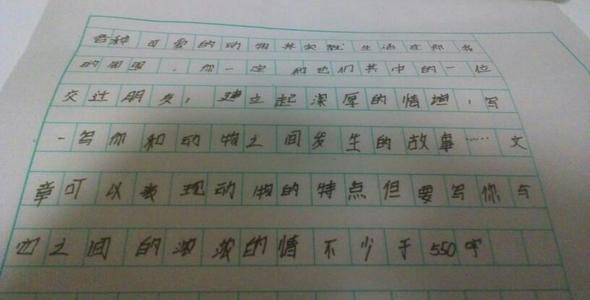 各种可爱的动物其实就生活在你我
的周围，你一定和它们其中的一位
交过朋友，建立起深厚的情谊，写
一写你和动物之间发生的故事……文
章可以表现动物的特点但要写你与
它之间的浓浓的情不少于550字